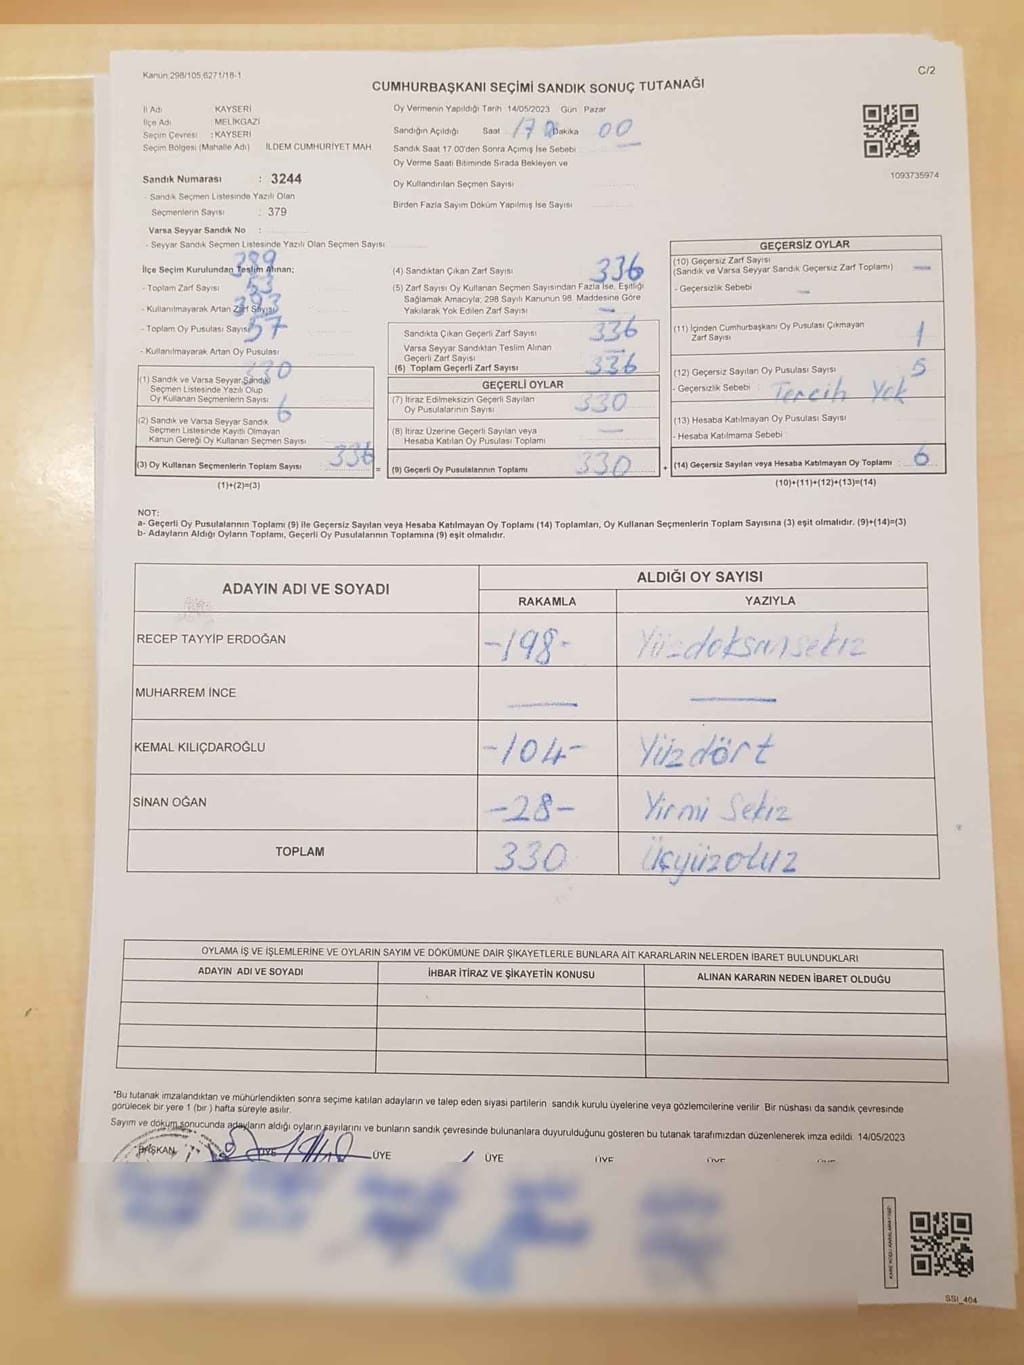 Kanun:298/105,6271/18-1
C/2
CUMHURBAŞKANI SEÇİMİ SANDIK SONUÇ TUTANAĞI
İl Adı : KAYSERİ
İlçe Adı : MELİKGAZİ
Seçim Çevresi : KAYSERİ
Seçim Bölgesi (Mahalle Adı) İLDEM CUMHURİYET MAH.
Sandık Numarası : 3244
- Sandık Seçmen Listesinde Yazılı Olan
Seçmenlerin Sayısı : 379
Varsa Seyyar Sandık No :
- Seyyar Sandık Seçmen Listesinde Yazılı Olan Seçmen Sayısı
Oy Vermenin Yapıldığı Tarih 14/05/2023 Gün Pazar
Sandığın Açıldığı Saat 17 Dakika 00
Sandık Saat 17.00'den Sonra Açımış İse Sebebi
Oy Verme Saati Bitiminde Sırada Bekleyen ve
Oy Kullandırılan Seçmen Sayısı
Birden Fazla Sayım Döküm Yapılmış İse Sayısı
1093735974
İlçe Seçim Kurulundan Teslim Alınan; 389
- Toplam Zarf Sayısı 53
- Kullanılmayarak Artan Zarf Sayısı 393
- Toplam Oy Pusulası Sayısı 57
- Kullanılmayarak Artan Oy Pusulası
(1) Sandık ve Varsa Seyyar Sandık 330
Seçmen Listesinde Yazılı Olup
Oy Kullanan Seçmenlerin Sayısı
(2) Sandık ve Varsa Seyyar Sandık 6
Seçmen Listesinde Kayıtlı Olmayan
Kanun Gereği Oy Kullanan Seçmen Sayısı
(3) Oy Kullanan Seçmenlerin Toplam Sayısı 336 =
(1)+(2)=(3)
(4) Sandıktan Çıkan Zarf Sayısı 336
(5) Zarf Sayısı Oy Kullanan Seçmen Sayısından Fazla İse, Eşitliği
Sağlamak Amacıyla; 298 Sayılı Kanunun 98. Maddesine Göre
Yakılarak Yok Edilen Zarf Sayısı —
Sandıkta Çıkan Geçerli Zarf Sayısı 336
Varsa Seyyar Sandıktan Teslim Alınan
Geçerli Zarf Sayısı —
(6) Toplam Geçerli Zarf Sayısı 336
GEÇERLİ OYLAR
(7) İtiraz Edilmeksizin Geçerli Sayılan
Oy Pusulalarının Sayısı 330
(8) İtiraz Üzerine Geçerli Sayılan veya
Hesaba Katılan Oy Pusulası Toplamı —
(9) Geçerli Oy Pusulalarının Toplamı 330 +
GEÇERSİZ OYLAR
(10) Geçersiz Zarf Sayısı
(Sandık ve Varsa Seyyar Sandık Geçersiz Zarf Toplamı) —
- Geçersizlik Sebebi —
(11) İçinden Cumhurbaşkanı Oy Pusulası Çıkmayan
Zarf Sayısı 1
(12) Geçersiz Sayılan Oy Pusulası Sayısı 5
- Geçersizlik Sebebi : Tercih Yok
(13) Hesaba Katılmayan Oy Pusulası Sayısı
- Hesaba Katılmama Sebebi
(14) Geçersiz Sayılan veya Hesaba Katılmayan Oy Toplamı 6
(10)+(11)+(12)+(13)=(14)
NOT:
a- Geçerli Oy Pusulalarının Toplamı (9) ile Geçersiz Sayılan veya Hesaba Katılmayan Oy Toplamı (14) Toplamları, Oy Kullanan Seçmenlerin Toplam Sayısına (3) eşit olmalıdır. (9)+(14)=(3)
b- Adayların Aldığı Oyların Toplamı, Geçerli Oy Pusulalarının Toplamına (9) eşit olmalıdır.
ADAYIN ADI VE SOYADI
ALDIĞI OY SAYISI
RAKAMLA YAZIYLA
RECEP TAYYİP ERDOĞAN -198- Yüzdoksansekiz
MUHARREM İNCE — —
KEMAL KILIÇDAROĞLU -104- Yüzdört
SİNAN OĞAN -28- Yirmi Sekiz
TOPLAM 330 Üçyüzotuz
OYLAMA İŞ VE İŞLEMLERİNE VE OYLARIN SAYIM VE DÖKÜMÜNE DAİR ŞİKAYETLERLE BUNLARA AİT KARARLARIN NELERDEN İBARET BULUNDUKLARI
ADAYIN ADI VE SOYADI İHBAR İTİRAZ VE ŞİKAYETİN KONUSU ALINAN KARARIN NEDEN İBARET OLDUĞU
*Bu tutanak imzalandıktan ve mühürlendikten sonra seçime katılan adayların ve talep eden siyasi partilerin sandık kurulu üyelerine veya gözlemcilerine verilir .Bir nüshası da sandık çevresinde
görülecek bir yere 1 (bir ) hafta süreyle asılır.
Sayım ve döküm sonucunda adayların aldığı oyların sayılarını ve bunların sandık çevresinde bulunanlara duyurulduğunu gösteren bu tutanak tarafımızdan düzenlenerek imza edildi. 14/05/2023
BAŞKAN ÜYE ÜYE ÜYE ÜYE ÜYE
SSİ_404